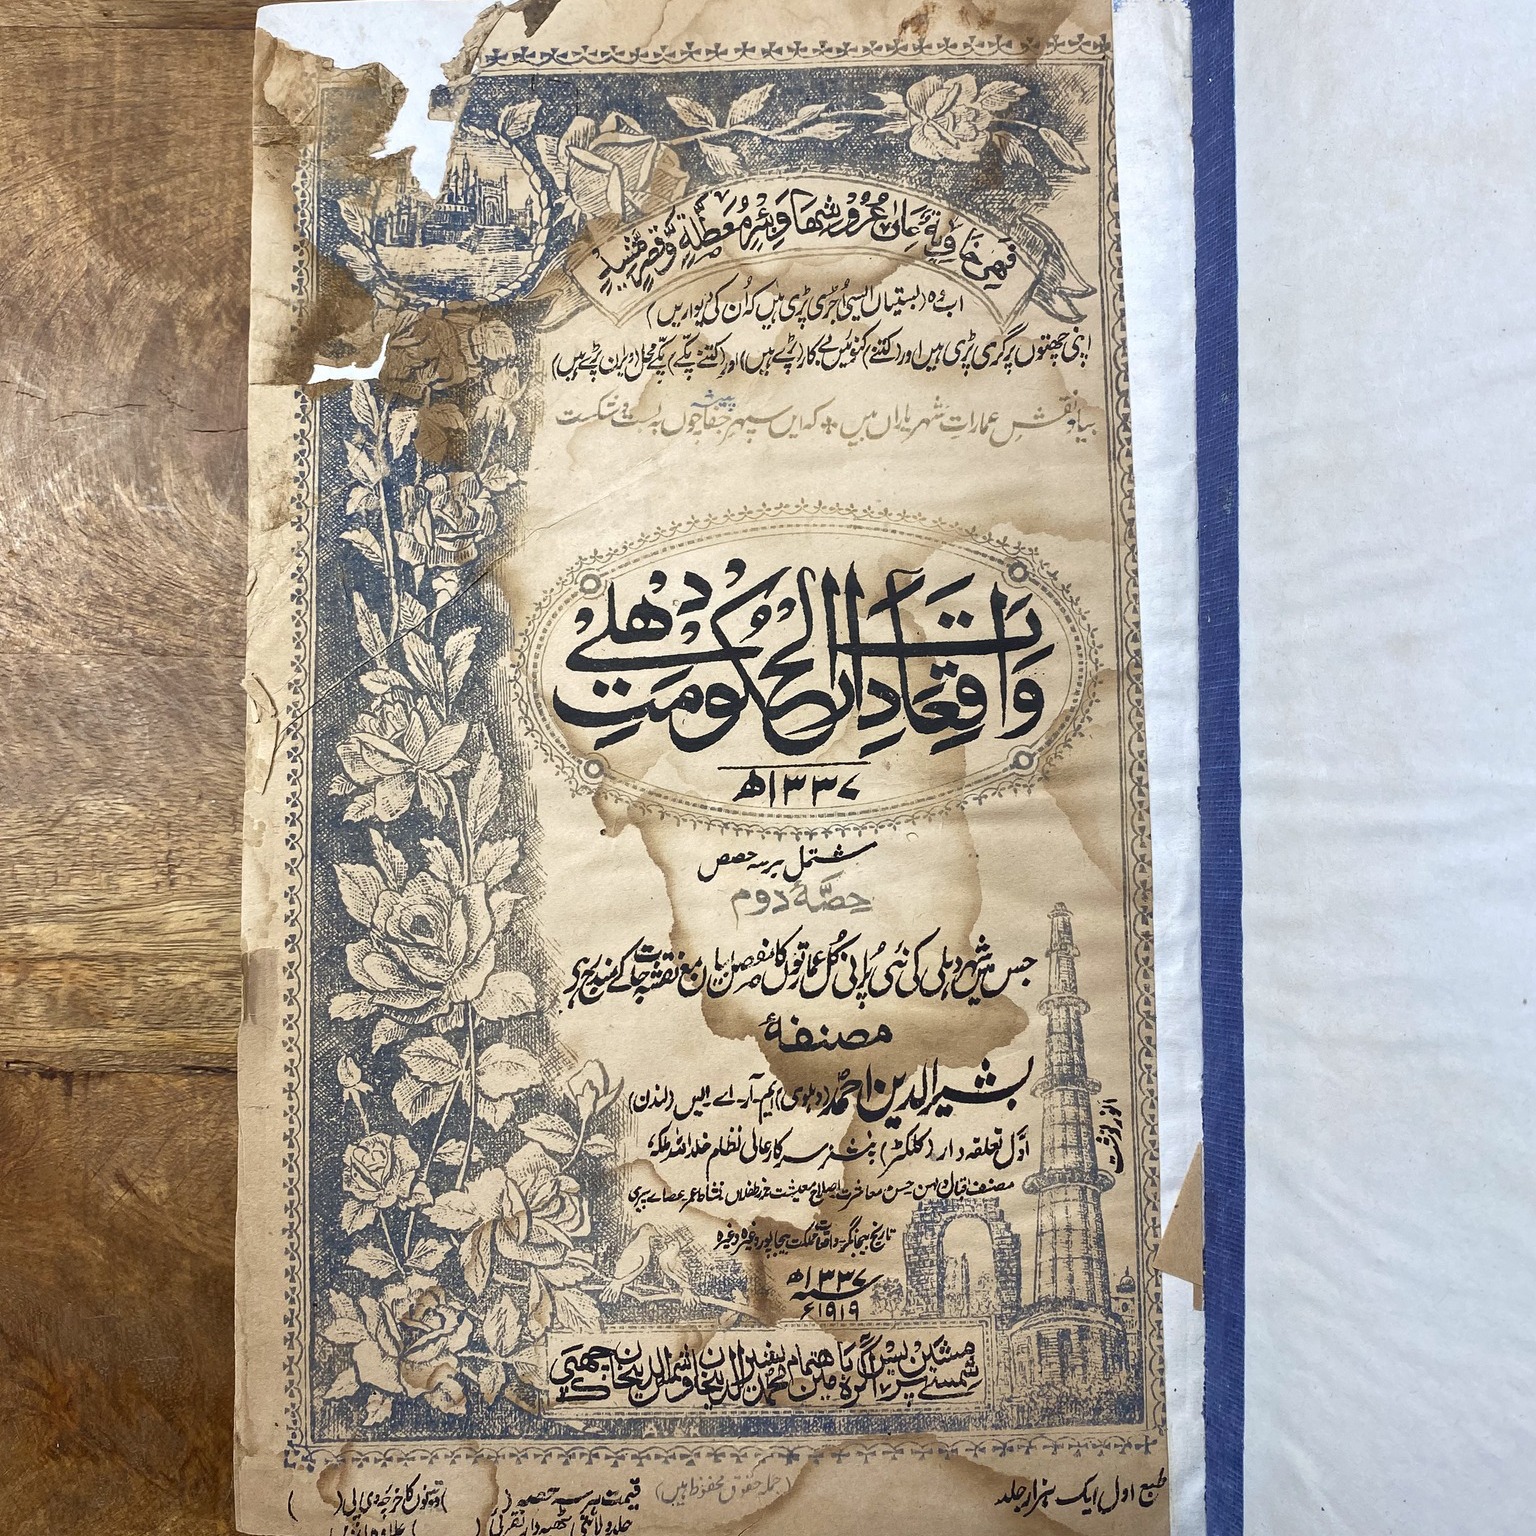 فَهِيَ خَاوِيَةٌ عَلٰى عُرُوْشِهَا وَبِئْرٍ مُّعَطَّلَةٍ وَّقَصْرٍ مَّشِيْدٍ
اب وہ (بستیاں ایسی اُجڑی پڑی ہیں کہ اُن کی دیواریں)
اپنی چھتوں پر گری پڑی ہیں اور (کتنے) کنوئیں بے کار (پڑے ہیں) اور (کتنے پکّے) پکّے محل (ویران پڑے ہیں)
بیا و نقش عماراتِ شہر یاراں بیں ٭ کہ ایں سپہرِ جفا پیشہ چوں بہ پست و شکست
واقعات دار الحکومت دہلی
۱۳۳۷ھ
مشتمل برسہ حصص
حصّۂ دوم
جس میں شہر دہلی کی نئی پُرانی کُل عمارتوں کا مفصل بیان مع نقشہ جات کے مندرج ہی
مصنفۂ
بشیر الدین احمد (دہلوی) ایم-آر-اے-ایس (لندن)
اوّل تعلقہ دار (کلکٹر) پنشنر سرکار عالی نظام خلد اللہ ملکہٗ
مصنف اقبال دلہن حسن معاشرت اصلاح معیشت حرز طفلاں نشاط عمر عصائے پیری
تاریخ بیجانگر واقعات مملکت بیجاپور وغیرہ وغیرہ
۱۳۳۷ھ
سنہ
۱۹۱۹ء
شمسی مشین پریس آگرہ میں باہتمام محمد بشیر الدین خان و شمس الدین خان چھپی
طبع اول ایک ہزار جلد
(جملہ حقوق محفوظ ہیں)
قیمت ہر سہ حصہ ( ) کا خرچہ وی پی ( )
جلد ولائتی